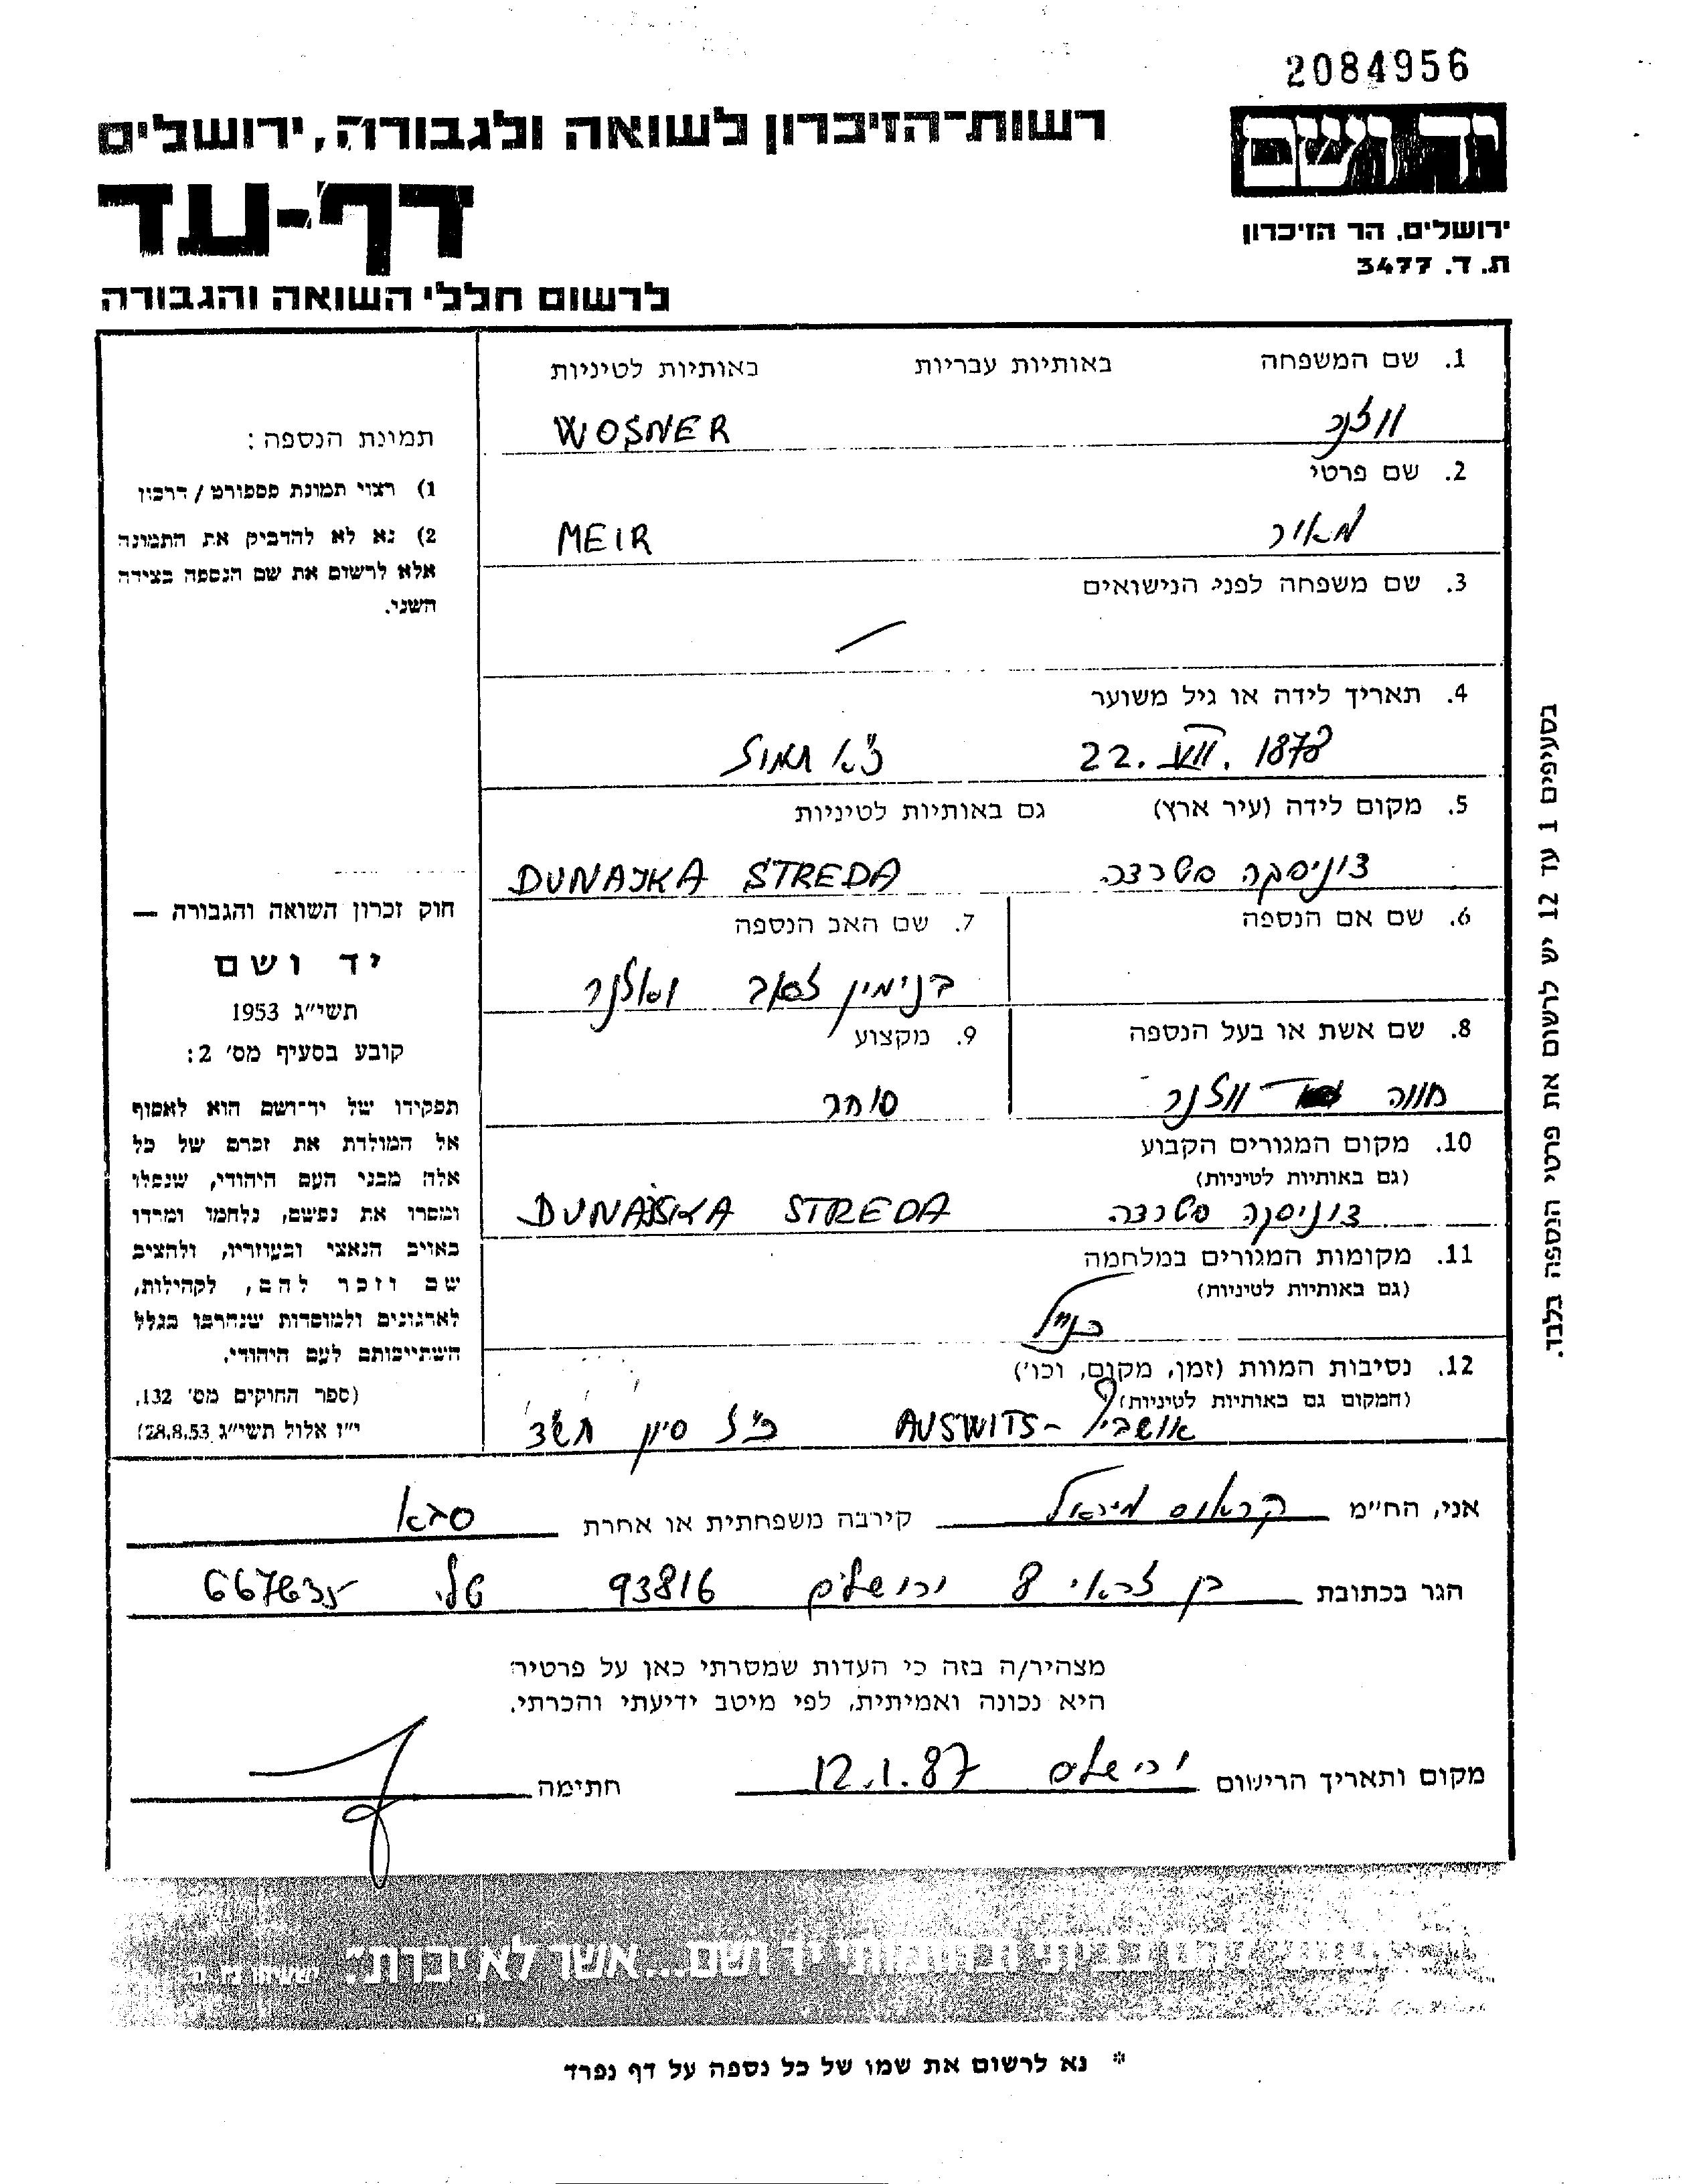 2084956
רשות־הזיכרון לשואה ולגבורה, ירושלים
יד ושם
דף-עד
ירושלים, הר הזיכרון
ת. ד. 3477
לרשום חללי השואה והגבורה
תמונת הנספה:
1) רצוי תמונת פספורט/דרכון
2) נא לא להדביק את התמונה
אלא לרשום את שם הנספה בצידה
השני.
חוק זכרון השואה והגבורה —
יד ושם
תשי״ג 1953
קובע בסעיף מס׳ 2:
תפקידו של יד־ושם הוא לאסוף
אל המולדת את זכרם של כל
אלה מבני העם היהודי, שנפלו
ומסרו את נפשם, נלחמו ומרדו
באויב הנאצי ובעוזריו, ולהציב
שם וזכר להם, לקהילות,
לארגונים ולמוסדות שנחרבו בגלל
השתייכותם לעם היהודי.
(ספר החוקים מס׳ 132,
י״ז אלול תשי״ג 28.8.53)
1. שם המשפחה באותיות עבריות באותיות לטיניות
ווזנר WOSNER
2. שם פרטי
מאיר MEIR
3. שם משפחה לפני הנישואים
4. תאריך לידה או גיל משוער
22. VII. 1878 כ״א תמוז
5. מקום לידה (עיר ארץ) גם באותיות לטיניות
דוניסקה סטרדה DUNAJKA STREDA
6. שם אם הנספה
7. שם האב הנספה
בנימין זאב וואזנר
8. שם אשת או בעל הנספה
חווה ווזנר
9. מקצוע
סוחר
10. מקום המגורים הקבוע
(גם באותיות לטיניות)
דוניסקה סטרדה DUNAJSKA STREDA
11. מקומות המגורים במלחמה
(גם באותיות לטיניות)
כנ״ל
12. נסיבות המוות (זמן, מקום, וכו׳)
(המקום גם באותיות לטיניות)
אושביץ - AUSWITS כ״ז סיון תש״ד
אני, הח״מ קראוס קירבה משפחתית או אחרת סבא
הגר בכתובת בן 8 ירושלים 93816 טל. 667635
מצהיר/ה בזה כי העדות שמסרתי כאן על פרטיה
היא נכונה ואמיתית, לפי מיטב ידיעתי והכרתי.
מקום ותאריך הרישום ירושלים 12.1.87 חתימה
...ונתתי להם בביתי ובחומותי יד ושם...אשר לא יכרת״. ישעיהו נו ה
* נא לרשום את שמו של כל נספה על דף נפרד
בסעיפים 1 עד 12 יש לרשום את פרטי הנספה בלבד.